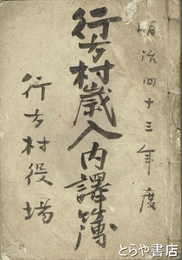 明治四十三年度
行方村歳入内譯簿
行方村役場
とらや書店